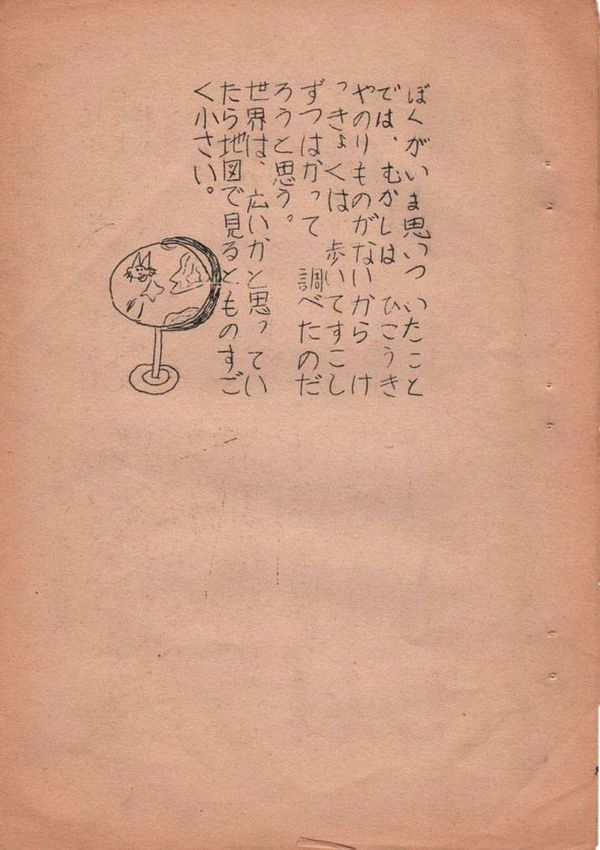 ぼくがいま思いついたこと
では、むかしは ひこうき
やのりものがないから け
っきょくは、歩いてすこし
ずつはかって 調べたのだ
ろうと思う。
世界は、広いかと思ってい
たら地図で見るとものすご
く小さい。